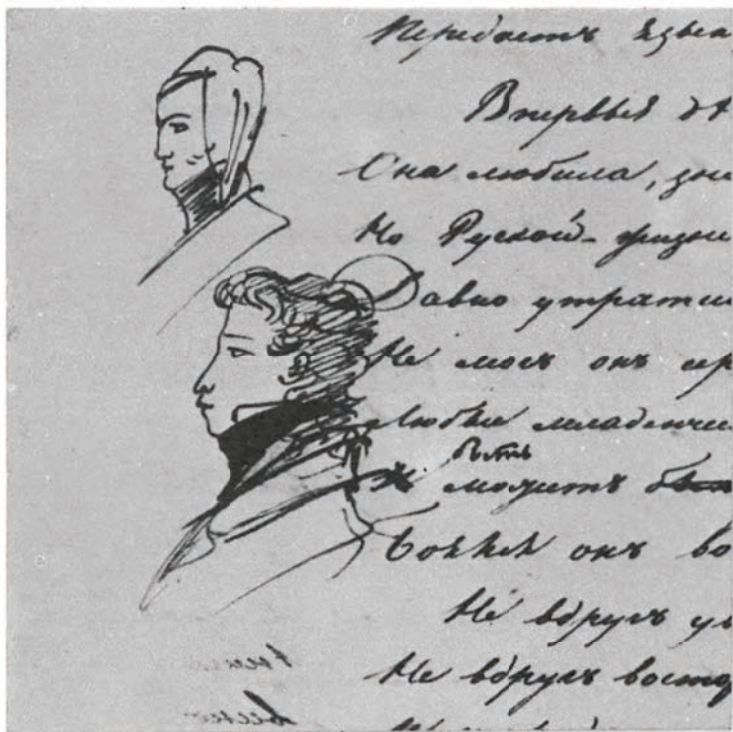 Передаетъ язык
Впервыя дѣ
Она любила, зна
Но Руской жизни
Давно утратил
Не могъ онъ сер
Любви младенчес
быть
можетъ
Боялся онъ во
Не вдругъ ув
Не вдругъ востор